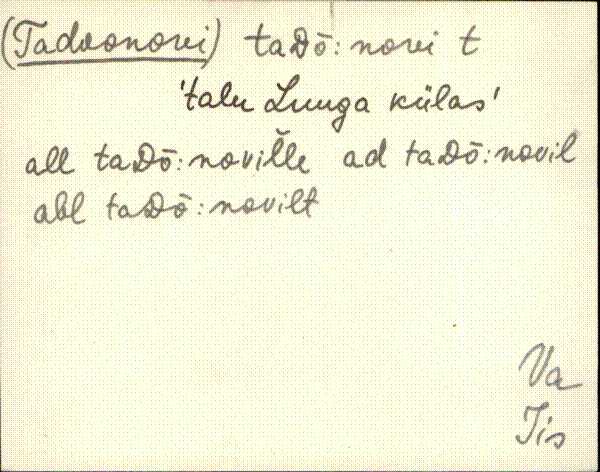 (Tadvonovi) taDō: novi t
'talu Luuga külas'
all taDō: noviľľe ad taDō: novil
abl taDō: novilt
Va
Jis